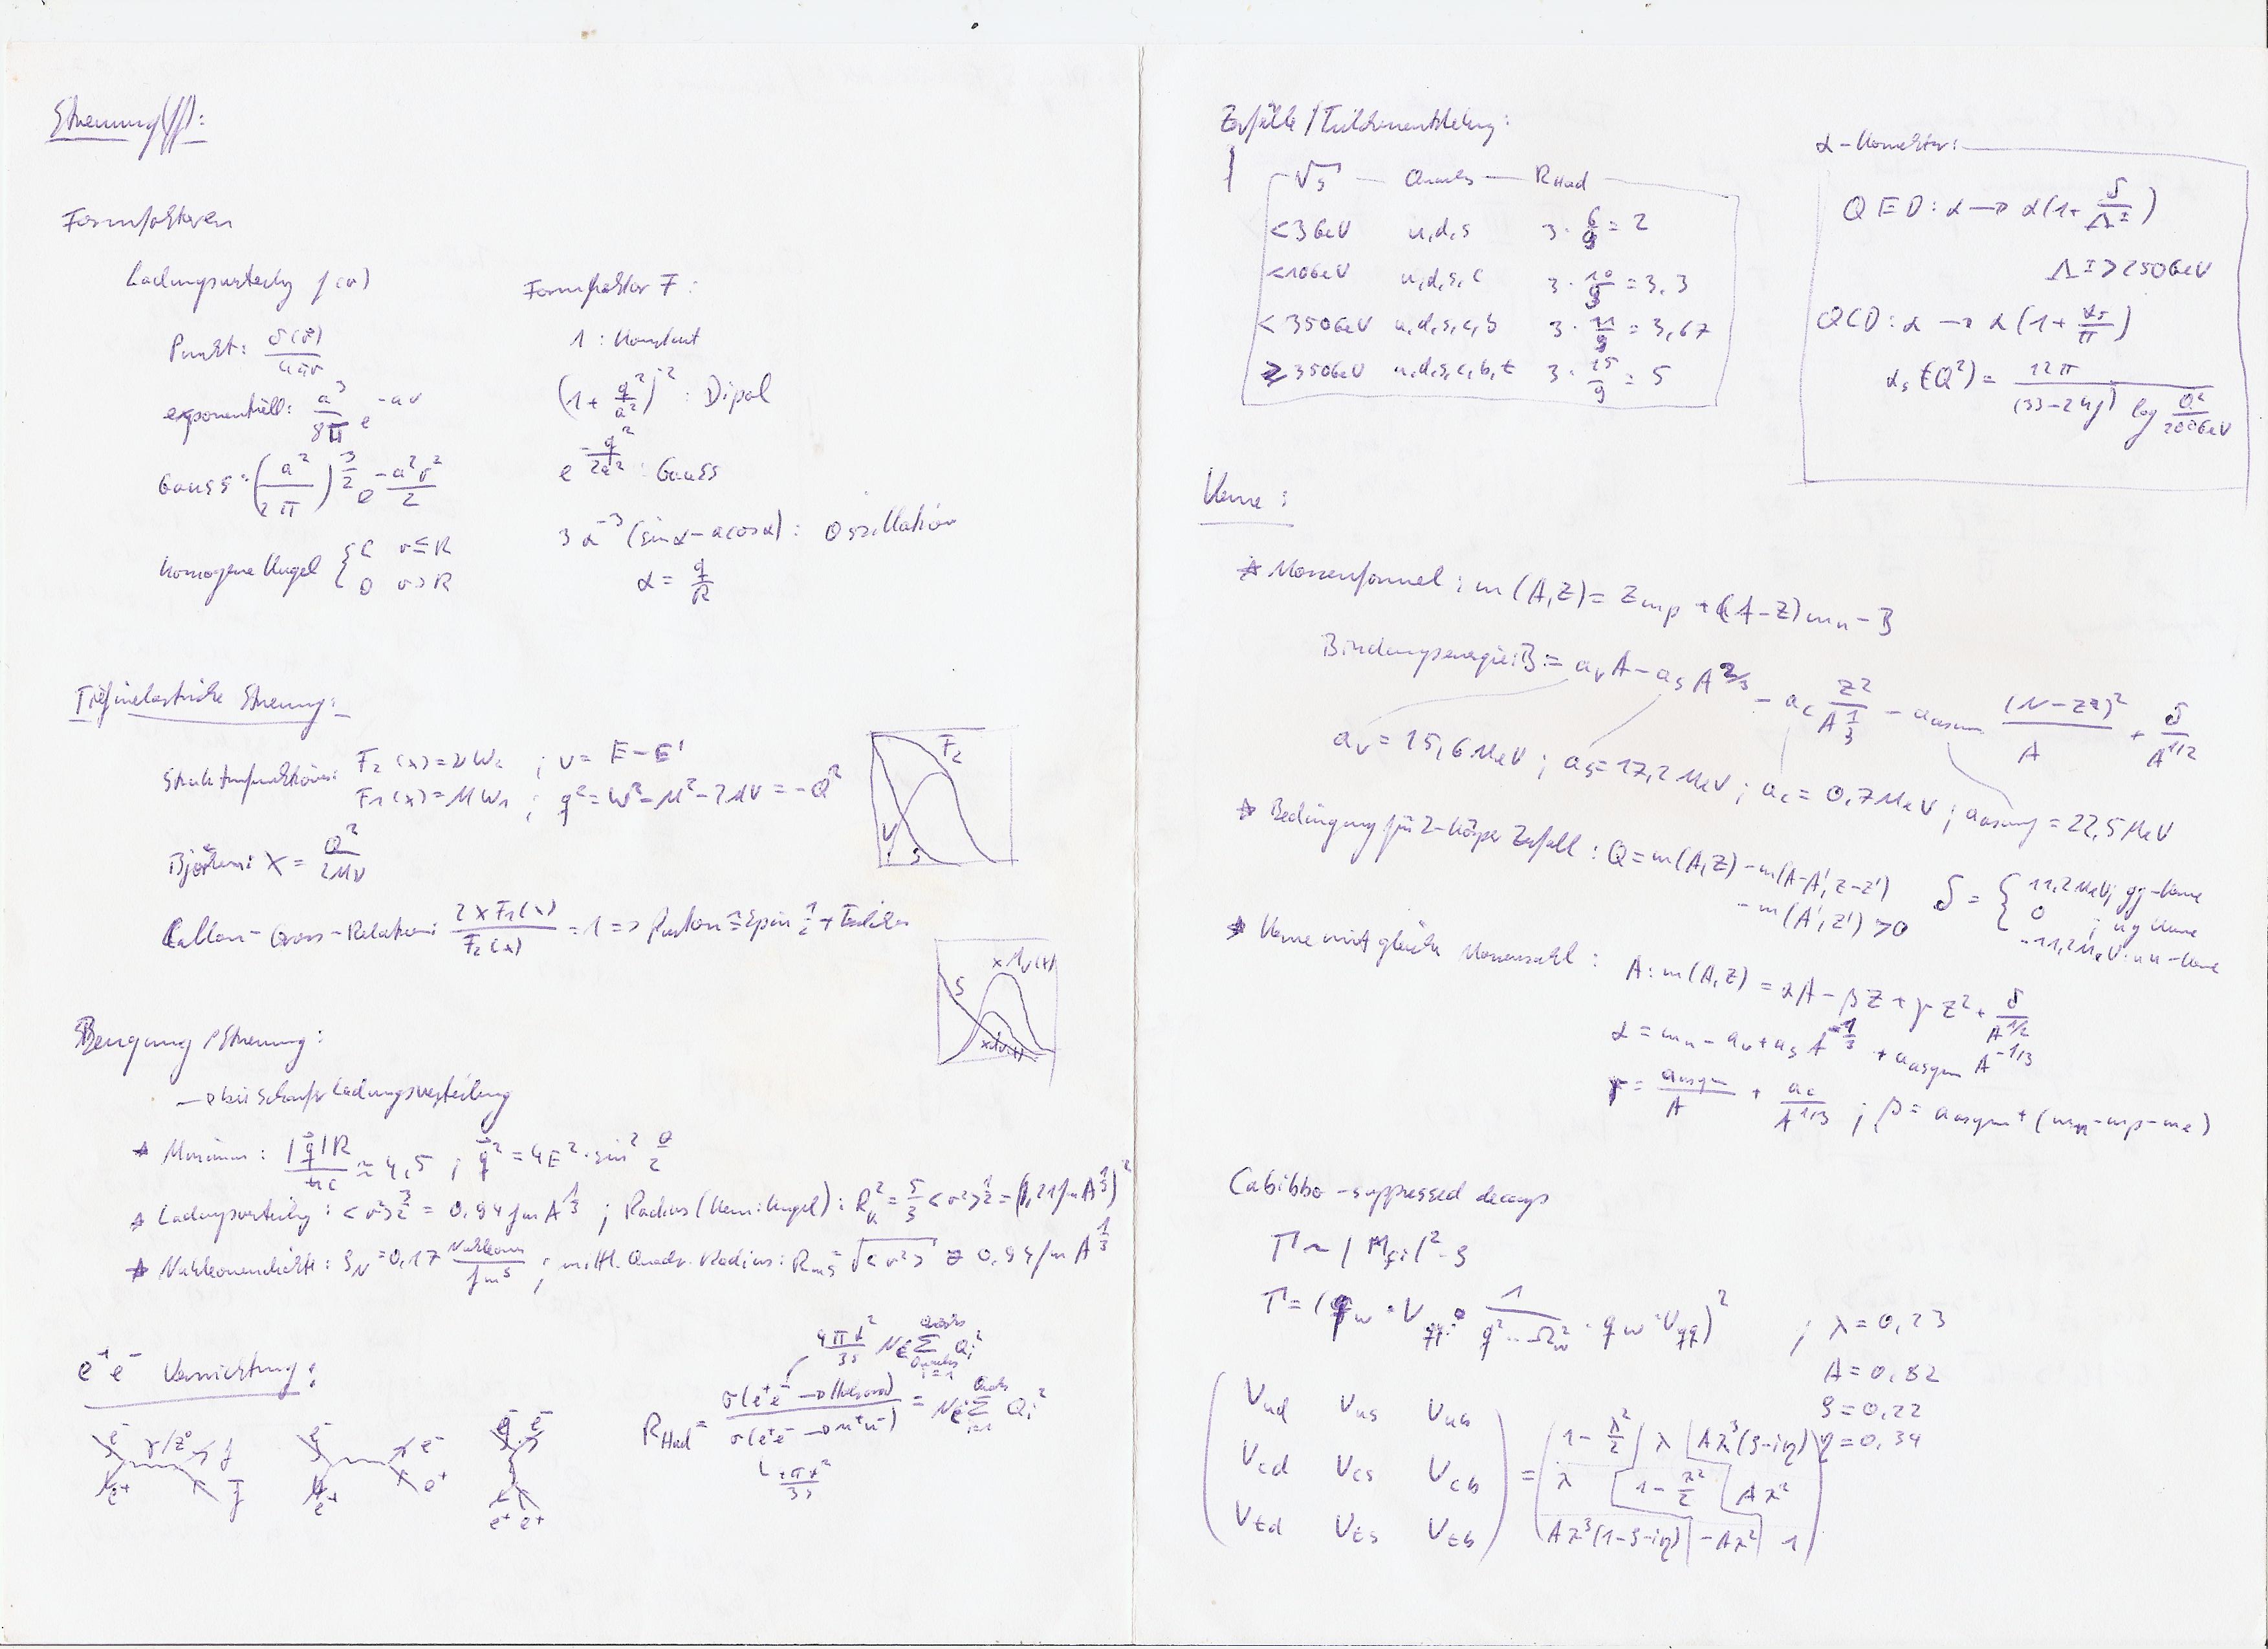 Streuung(ff):
Formfaktoren
Ladungsverteilg f(r)
Punkt: δ(r)/4πr
exponentiell: a³/8π e^-ar
Gauss: (a²/2π)^3/2 e^-a²r²/2
homogene Kugel { C r≤R
0 r>R
Formfaktor F:
1 : Konstant
(1+ q²/a²)^-2 : Dipol
e^-q²/2a² : Gauss
3α^-3 (sinα-αcosα): Oszillation
α = q/R
Tiefinelastische Streuung:
Strukturfunktionen: F₂(x)=νW₂ ; ν = E-E'
F₁(x)=MW₁ ; q²=W²-M²-2Mν = -Q²
F₂
V
S
Bjorken: X = Q²/2Mν
Callan-Gross-Relation: 2xF₁(x)/F₂(x) = 1 => Parton ≙ Spin 1/2 Teilchen
S
Beugung/Streuung:
→ bei scharfer Ladungsverteilung
* Minimum: |q|R/ħc ≈ 4,5 ; q² = 4E²·sin² θ/2
* Ladungsverteilg: <r²>^3/2 = 0,94fm A^1/3 ; Radius (Kern:Kugel): R_k² = 5/3 <r²>^1/2 = (1,21fm A^1/3)²
* Nukleonendichte: ρ_N = 0,17 Nukleonen/fm³ ; mittl. Quadr. Radius: R_ms = √<r²> ≅ 0,94fm A^1/3
e⁺e⁻ Vernichtung:
e⁻ γ/Z⁰ f
e⁺ f̄
e⁻ e⁻
e⁺ e⁺
e⁻ e⁻
e⁺ e⁺
4πα²/3s N_c Σ Q_i²
R_Had = σ(e⁺e⁻→Hadronen)/σ(e⁺e⁻→μ⁺μ⁻) = N_c Σ Q_i²
4πα²/3s
Zerfälle/Teilchenentstehung:
√s Quarks R_Had
<3GeV u,d,s 3·6/9 = 2
<10GeV u,d,s,c 3·10/9 = 3,3
<350GeV u,d,s,c,b 3·11/9 = 3,67
≥350GeV u,d,s,c,b,t 3·15/9 = 5
α-Korrektur:
QED: α → α(1+ s/Λ±)
Λ± > 250GeV
QCD: α → α(1+ αs/π)
αs(Q²) = 12π/(33-2nf) log Q²/200GeV
Kerne:
* Massenformel: m(A,Z) = Zmp + (A-Z)mn - B
Bindungsenergie: B = avA - asA^2/3 - ac Z²/A^1/3 - aasym (N-Z)²/A + δ/A^1/2
av = 15,6MeV ; as = 17,2MeV ; ac = 0,7MeV ; aasym = 22,5MeV
* Bedingung für 2-Körper Zerfall: Q = m(A,Z) - m(A-A',Z-Z')
- m(A',Z') > 0
δ = { 11,2MeV; gg-Kerne
0 ; ug Kerne
-11,2MeV: uu-Kerne
* Kerne mit gleicher Massenzahl: A: m(A,Z) = αA - βZ + γZ² + δ/A^1/2
α = mn - av + as A^-1/3 + aasym A^-1/3
γ = aasym/A + ac/A^1/3 ; β = aasym + (mn-mp-me)
Cabibbo-suppressed decays
Γ ~ |Mfi|²·ρ
Γ = (gw · Vqq · 1/q²-Mw² · gw · Vqq)² ; λ = 0,23
A = 0,82
ρ = 0,22
η = 0,34
(Vud Vus Vub) (1-λ²/2 λ Aλ³(ρ-iη))
(Vcd Vcs Vcb) = (λ 1-λ²/2 Aλ²)
(Vtd Vts Vtb) (Aλ³(1-ρ-iη) -Aλ² 1)